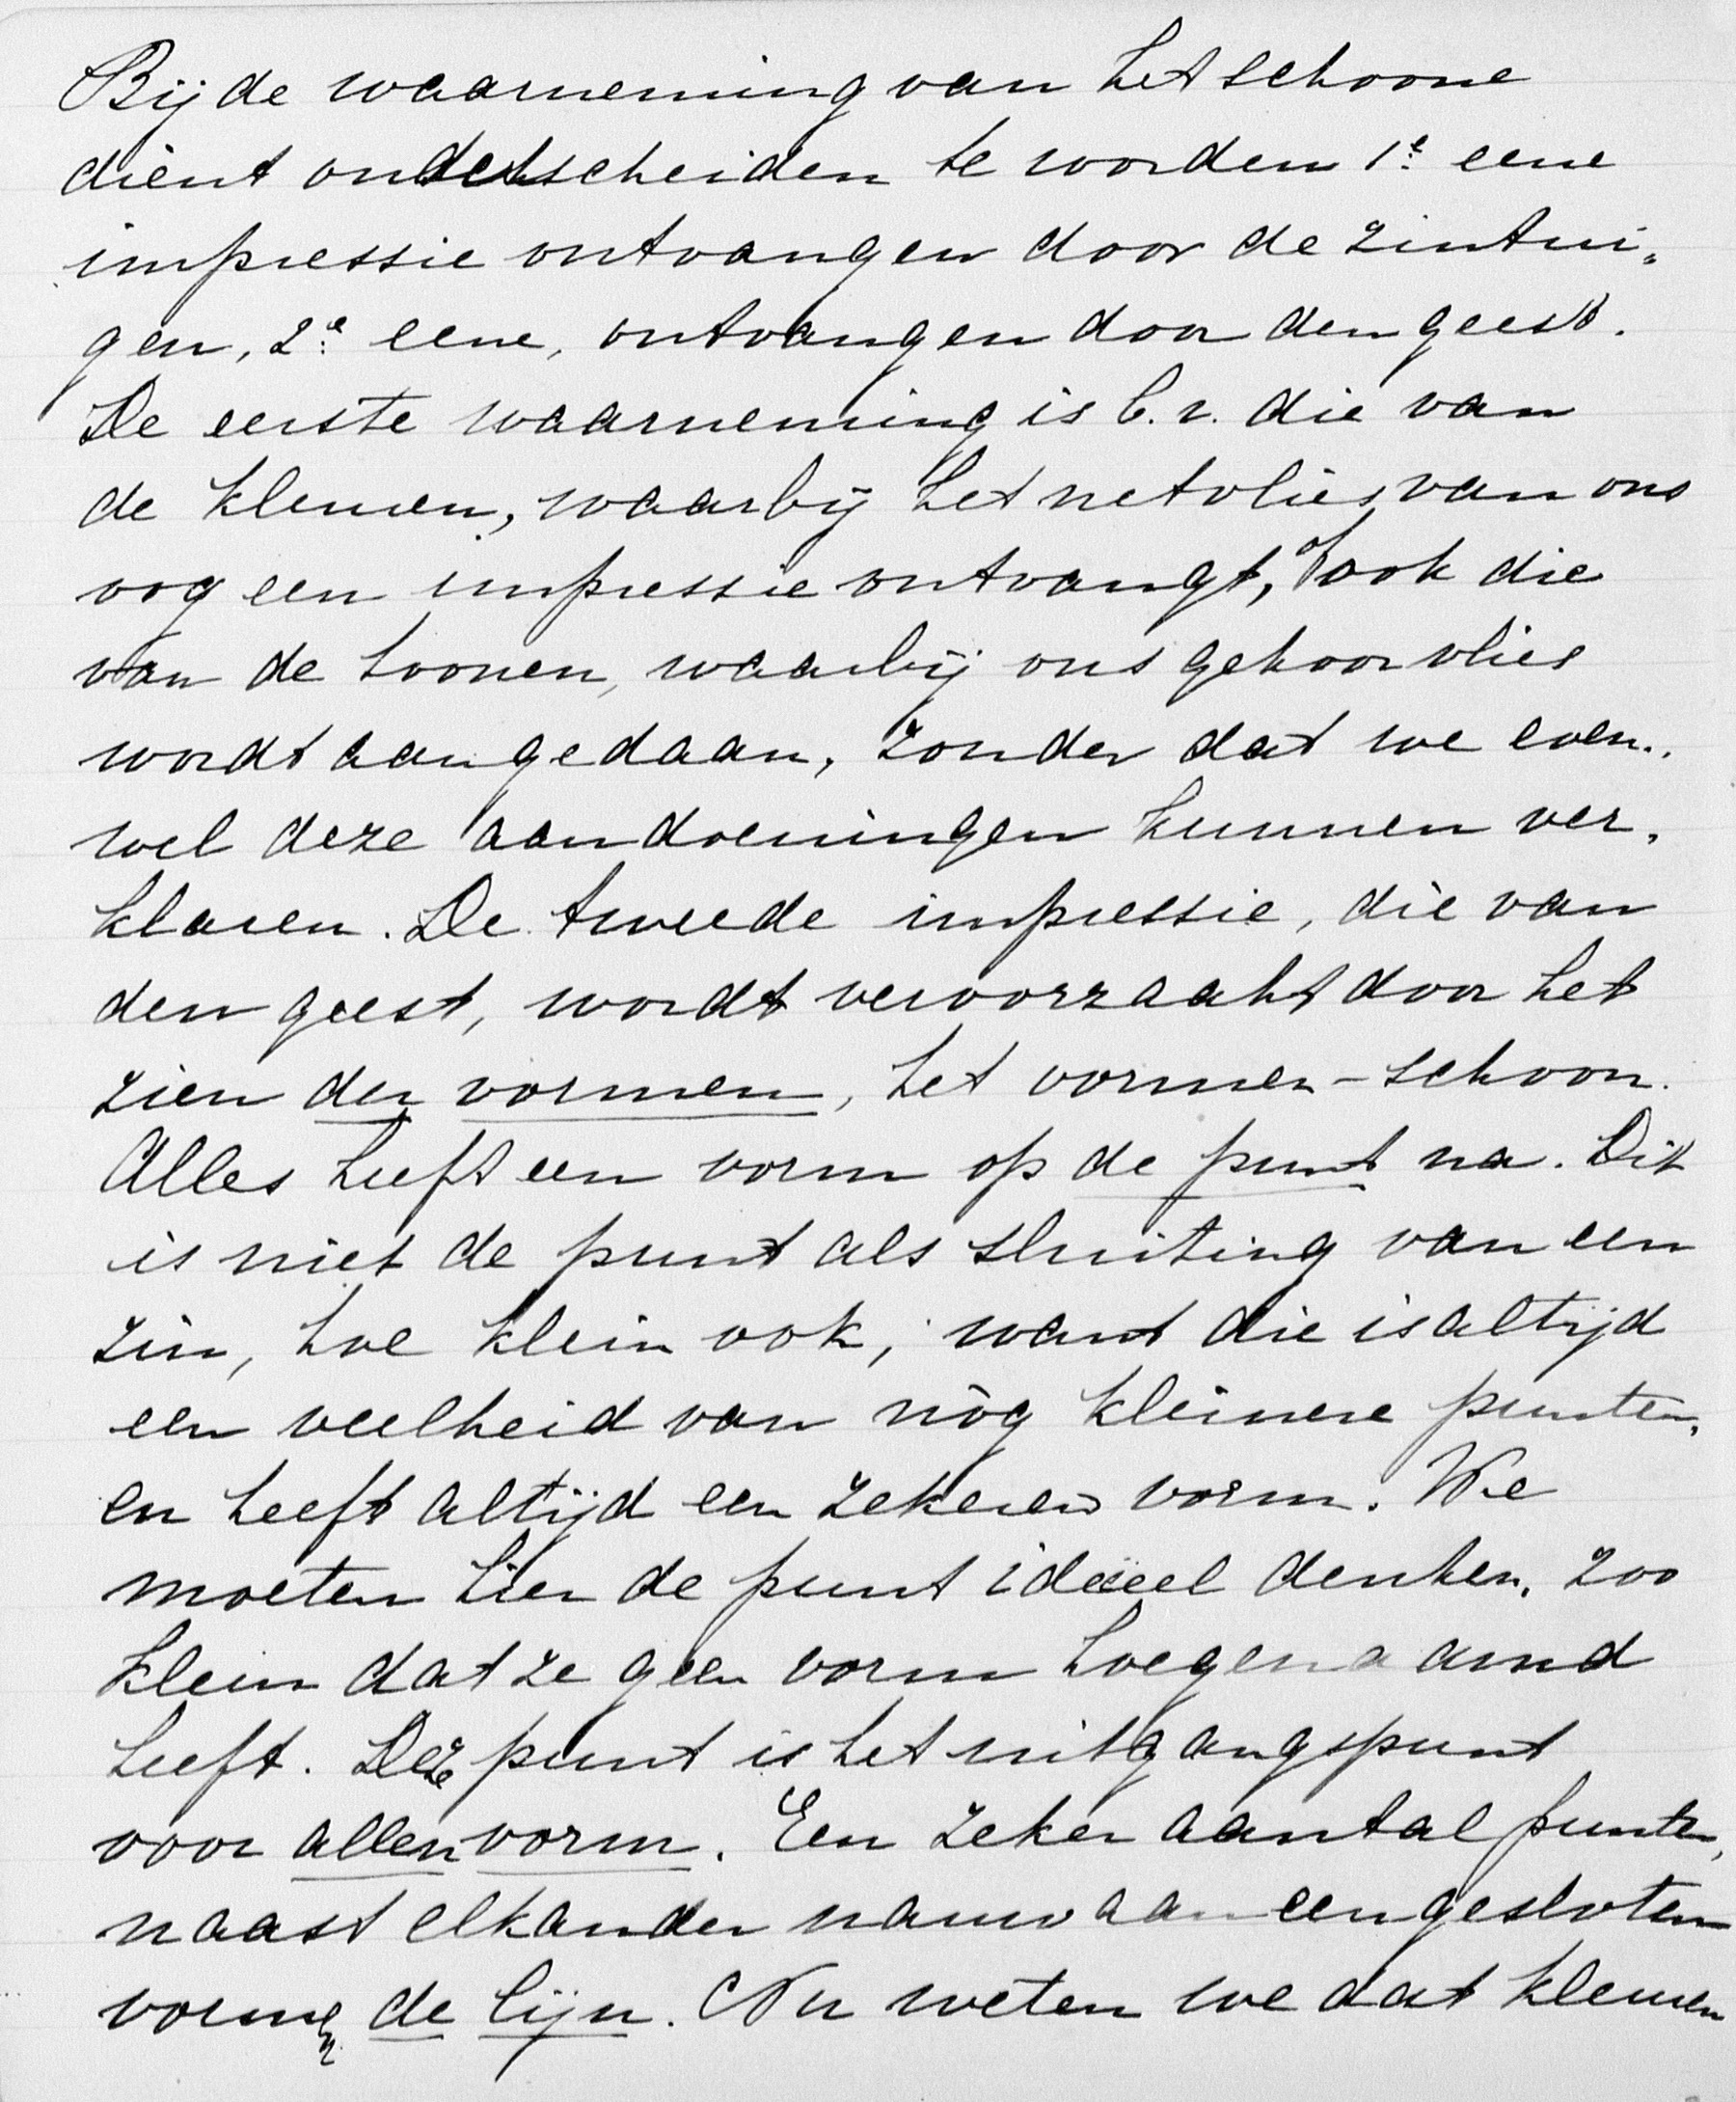 Bij de waarneming van het schoone
dient onderscheiden te worden 1e. eene
impressie ontvangen door de zintui„
gen, 2e. eene, ontvangen door den geest.
De eerste waarneming is b.v. die van
de kleuren, waarbij het netvlies van ons
oog een impressie ontvangt, of ook die
van de toonen, waarbij ons gehoorvlies
wordt aangedaan, zonder dat we even„
wel deze aandoeningen kunnen ver„
klaren. De tweede impressie, die van
den geest, wordt veroorzaakt door het
zien der vormen, het vormen-schoon.
Alles heeft een vorm op de punt na. Dit
is niet de punt als sluiting van een
zin, hoe klein ook, want die is altijd
een veelheid van nòg kleinere punten,
en heeft altijd een zekeren vorm. We
moeten hier de punt ideëel denken, zoo
klein dat ze geen vorm hoegenaamd
heeft. Deze punt is het uitgangspunt
voor allen vorm. Een zeker aantal punten,
naast elkander nauw aaneengesloten
vormen de lijn. Nu weten we dat kleuren